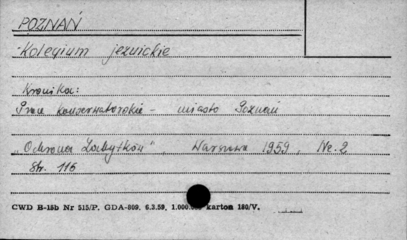 POZNAŃ
Kolegium jezuickie
Kronika:
Prace konserwatorskie - miasto Poznań
„Ochrona Zabytków", Warszawa 1959, Nr. 2
Str. 116
CWD B-15b Nr 515/P. GDA-809. 6.3.59. 1.000.000 karton 180/V.